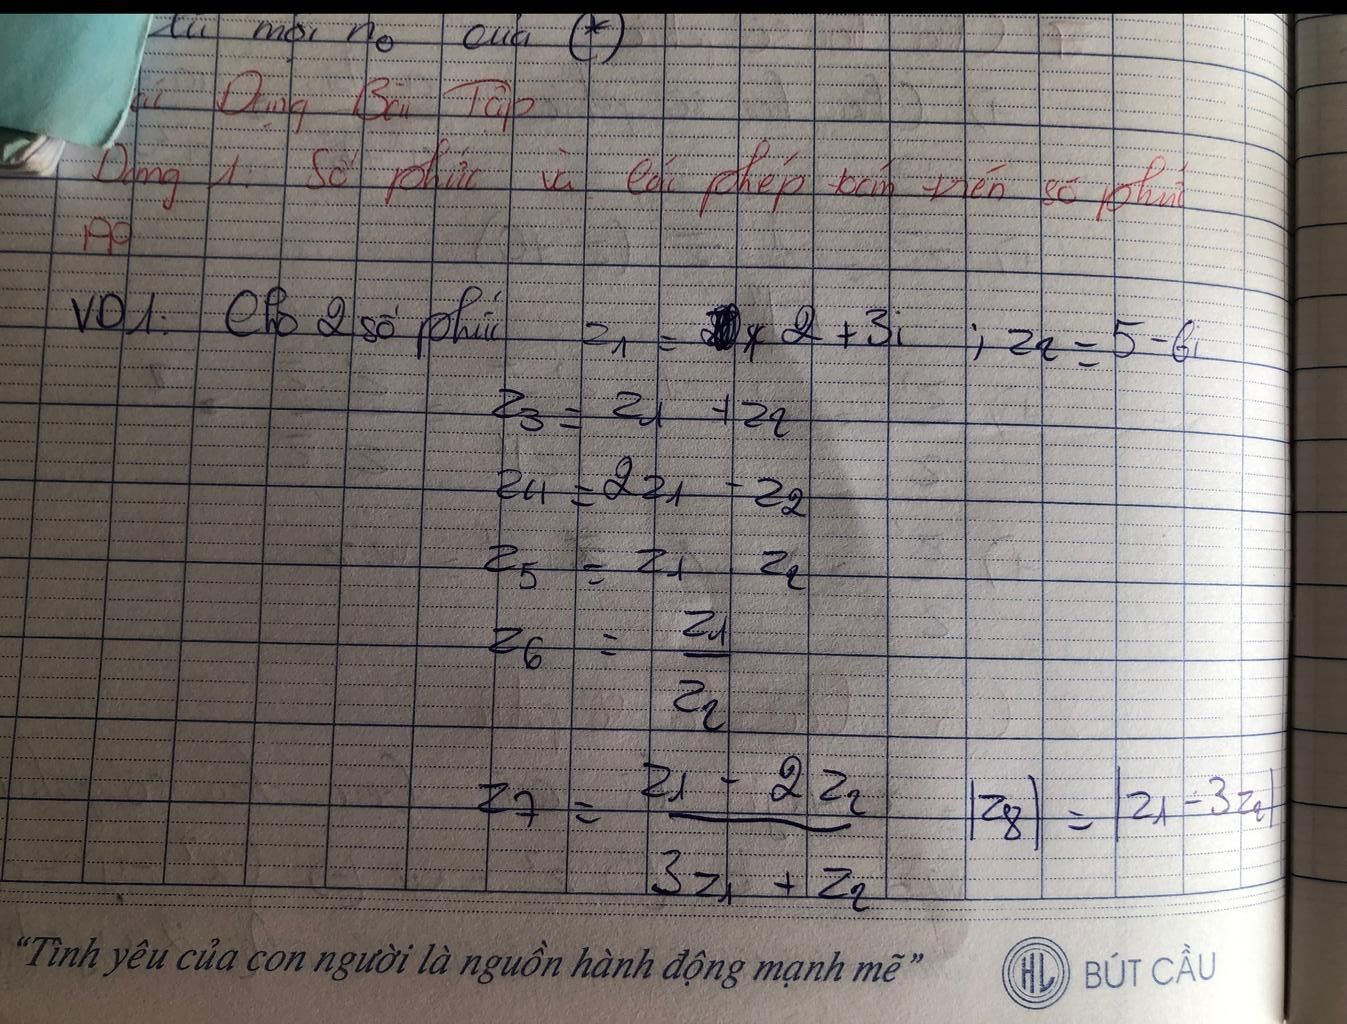 mọi no của (*)
Dạng Bài Tập
Dạng 1: Số phức và các phép toán trên số phức
VD1: Cho 2 số phức z₁ = 2 + 3i ; z₂ = 5 - 6i
z₃ = z₁ + z₂
z₄ = 2z₁ - z₂
z₅ = z₁ . z₂
z₆ = z₁ / z₂
z₇ = (z₁ - 2z₂) / (3z₁ + z₂) |z₈| = |z₁ - 3z₂|
“Tình yêu của con người là nguồn hành động mạnh mẽ”
HL BÚT CẦU